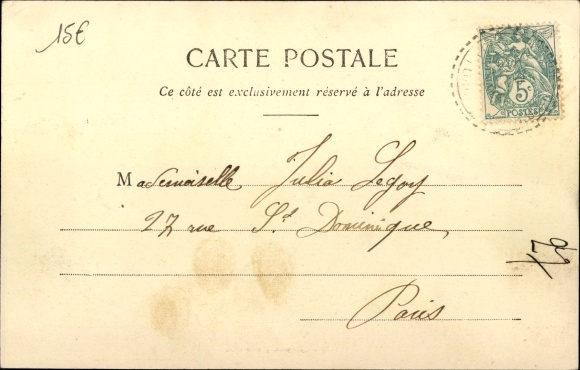 15€
CARTE POSTALE
Ce côté est exclusivement réservé à l'adresse
5c
POSTES
Mademoiselle Julia Legoy
27 rue St Dominique,
Paris